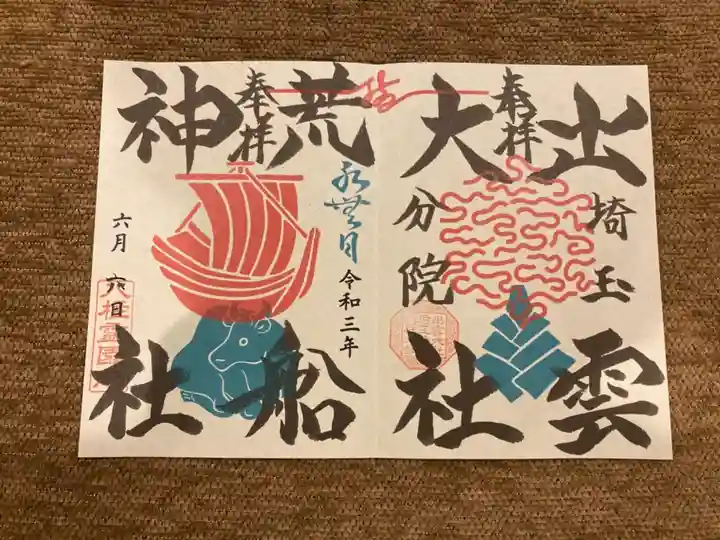 出雲
埼玉
奉拝
大社
分院
荒船
奉拝
水無月
令和三年
神社
六月 六日